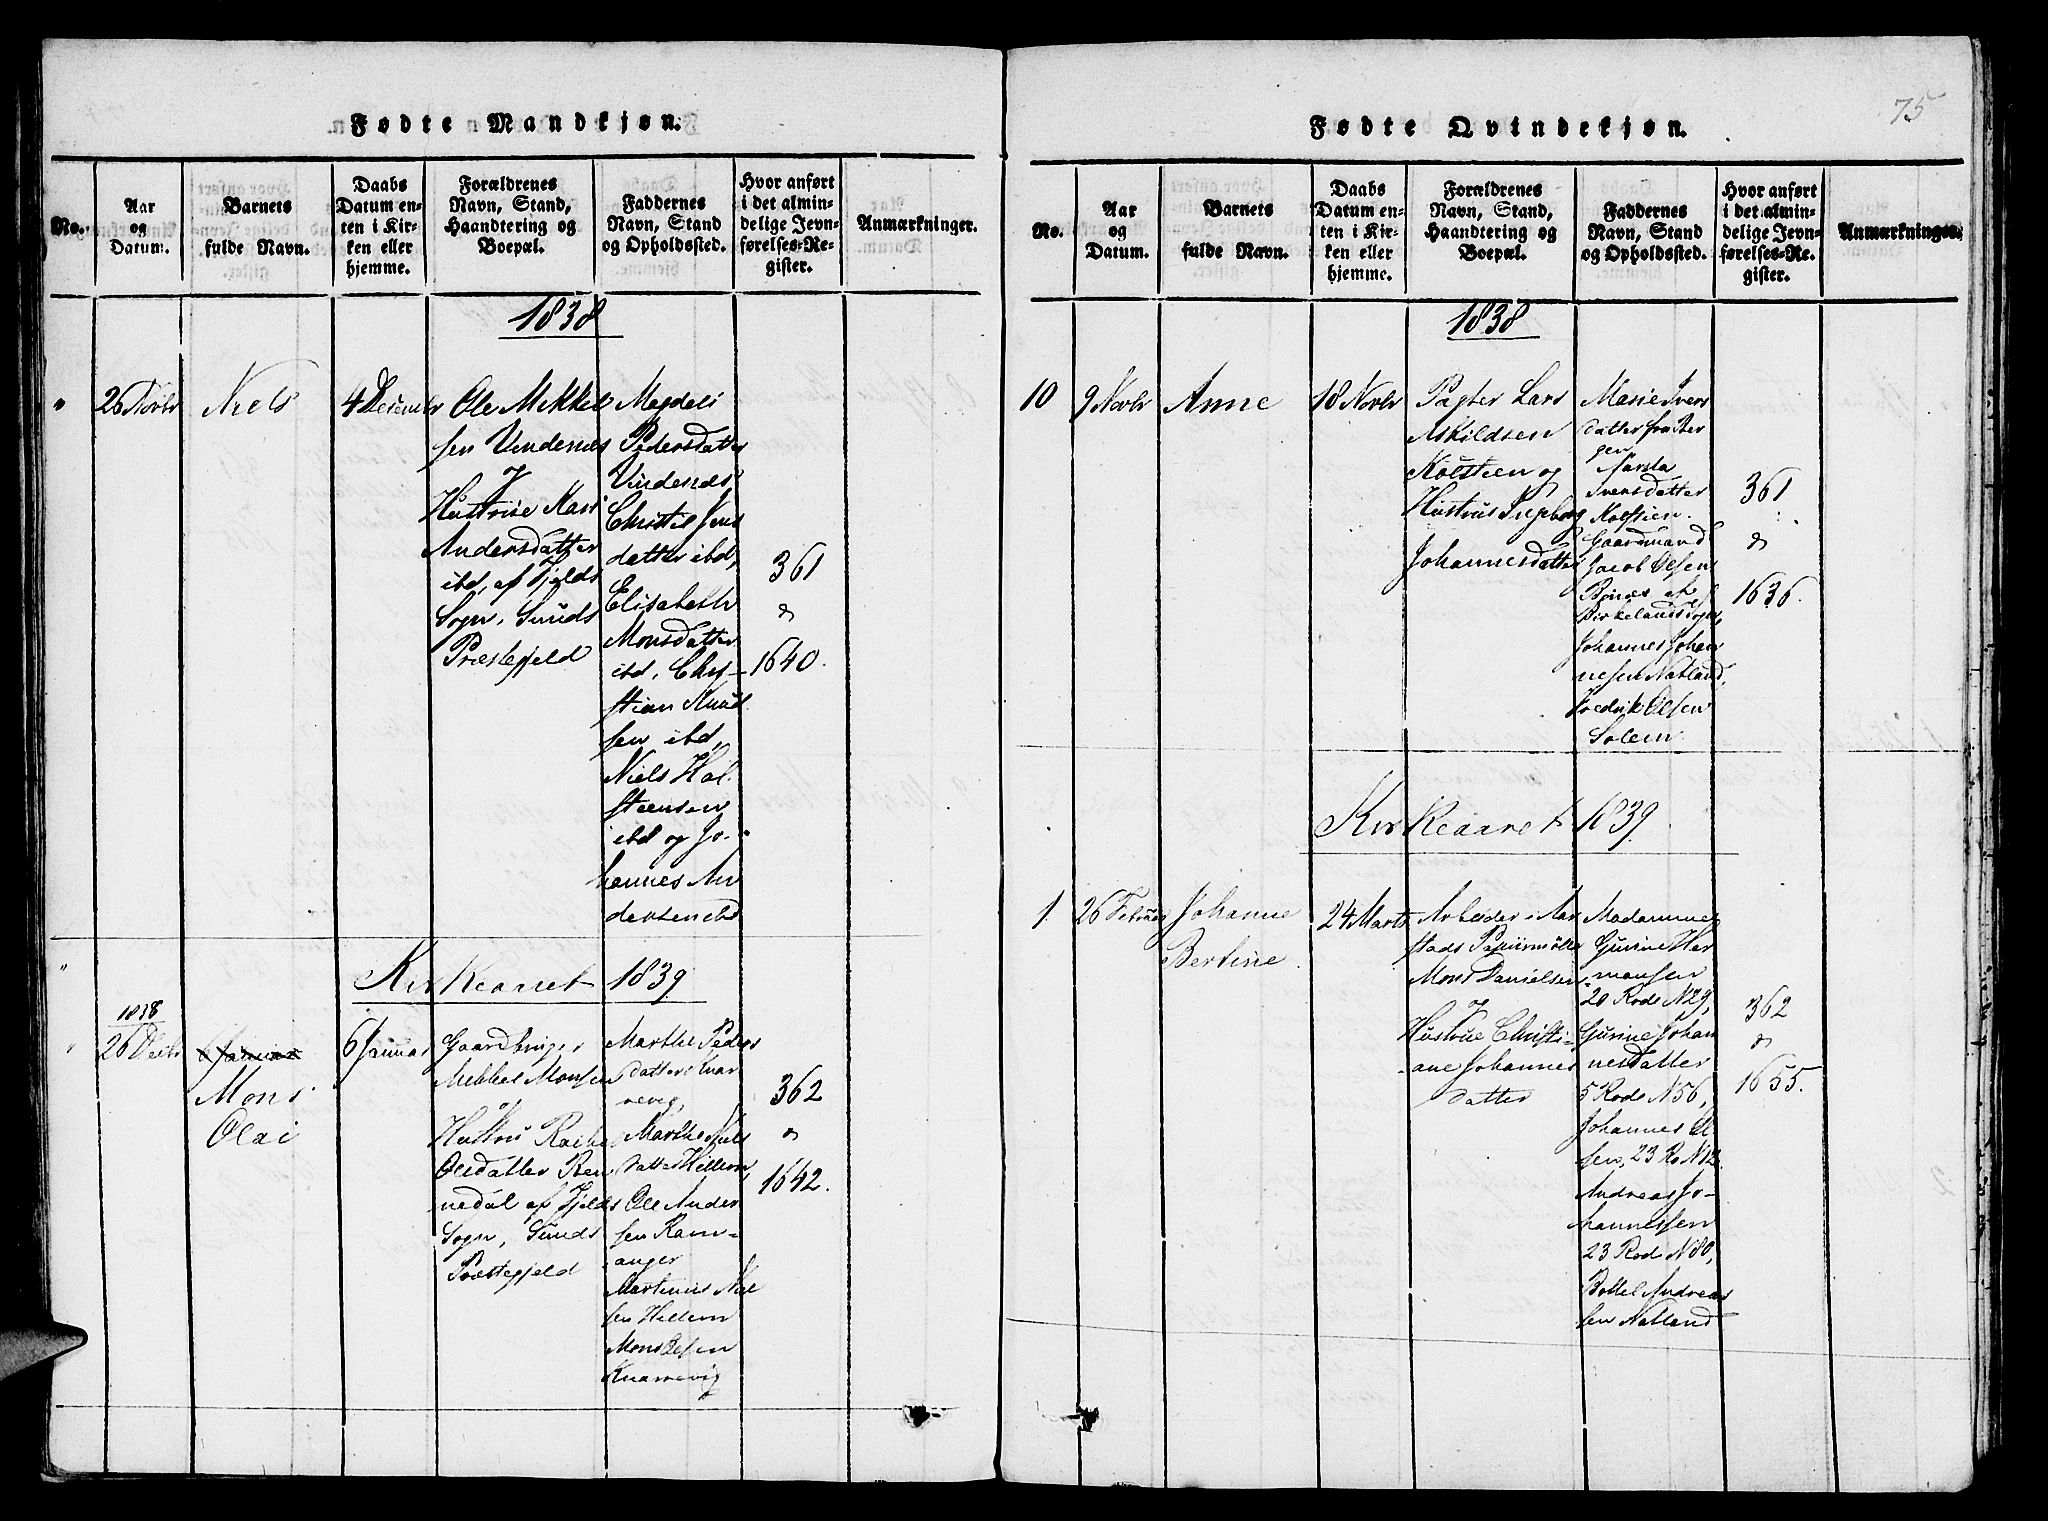 Fødte Mandkjøn.
No.
Aar
og
Datum.
Barnets
fulde Navn.
Daabs
Datum en-
ten i Kir-
ken eller
hjemme.
Forældrenes
Navn, Stand,
Haandtering og
Boepæl.
Faddernes
Navn, Stand
og Opholdssted.
Hvor anført
i det almin-
delige Jevn-
førelses-Re-
gister.
Anmærkninger.
1838
26 Novbr
Niels
4 Decembr
Ole Mikkel
sen Vindenæs
&
Hustrue Kari
Andersdatter
ibd, af Fjelds
Sogn, Sunds
Præstegjeld
Magdeli
Pedersdatter
Vindenæs,
Christi Jens
datter ibd,
Elisabeth
Monsdatter
ibd, Chri-
stian Knud
sen ibd,
Niels Hol-
steensen
ibd og Jo-
hannes An
dersen ibd
361
&
1640.
Kirkeaaret 1839
1838
26 Decbr
6 Januar
Mons
Olai
6 Januar
Gaardbruger
Mikkel Monsen
&
Hustru
Olsdatter Ren
nedal af Fjelds
Sogn, Sunds
Præstegjeld
Marthe Peders
datter Knar
revig,
Marthe Niels
datter Hillern,
Ole Ander
sen Ram-
anger
Martinus Niel
sen Hillern
Mons Olsen
Knarrevig
362
&
1642.
75
Fødte Qvindekjøn.
No.
Aar
og
Datum.
Barnets
fulde Navn.
Daabs
Datum en-
ten i Kir-
ken eller
hjemme.
Forældrenes
Navn, Stand,
Haandtering og
Boepæl.
Faddernes
Navn, Stand
og Opholdssted.
Hvor anført
i det almin-
delige Jevn-
førelses-Re-
gister.
Anmærkninger.
1838
10
9 Novbr
Anne
18 Novbr
Pagter Lars
Askildsen
Kolsteen og
Hustrue Ingeborg
Johannesdatter
Marie Ivers
datter fra Ber
gen
Marita
Iversdatter
Kolstien.
Gaardmand
Jacob Olsen
Bønes af
Birkelands Sogn,
Johannes Johan
nesen Natland,
Fredrik Olsen
Solem.
361
&
1636.
Kirkeaaret 1839
1.
26 Februar
Johanne
Bertine
24 Marts
Arbeider i Aar
stads Papiirmølle
Mons Danielsen
&
Hustrue Christi-
ane Johannes
datter
Madamme
Gurine Her
mansen
20 Rode N 29,
Gurine Johan
nesdatter
5 Rode N 56,
Johannes Ol
sen, 23 Ro N 12
Andreas Jo-
hannessen
23 Rode N 80,
Bottel Andreas
sen Natland
362
&
1655.